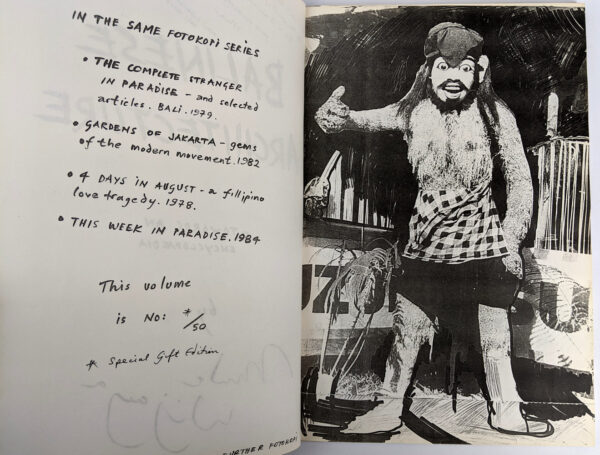 IN THE SAME FOTOKOPI SERIES
• THE COMPLETE STRANGER
IN PARADISE - and selected
articles. BALI. 1979.
• GARDENS OF JAKARTA - gems
of the modern movement. 1982
• 4 DAYS IN AUGUST - a fillipino
love tragedy. 1978.
• THIS WEEK IN PARADISE. 1984
This volume
is NO: */50
* Special Gift Edition
FURTHER FOTOKOPI
BALINESE
ARCHITECTURE
ENCYCLOPAEDIA
Made
Wijaya
UZU